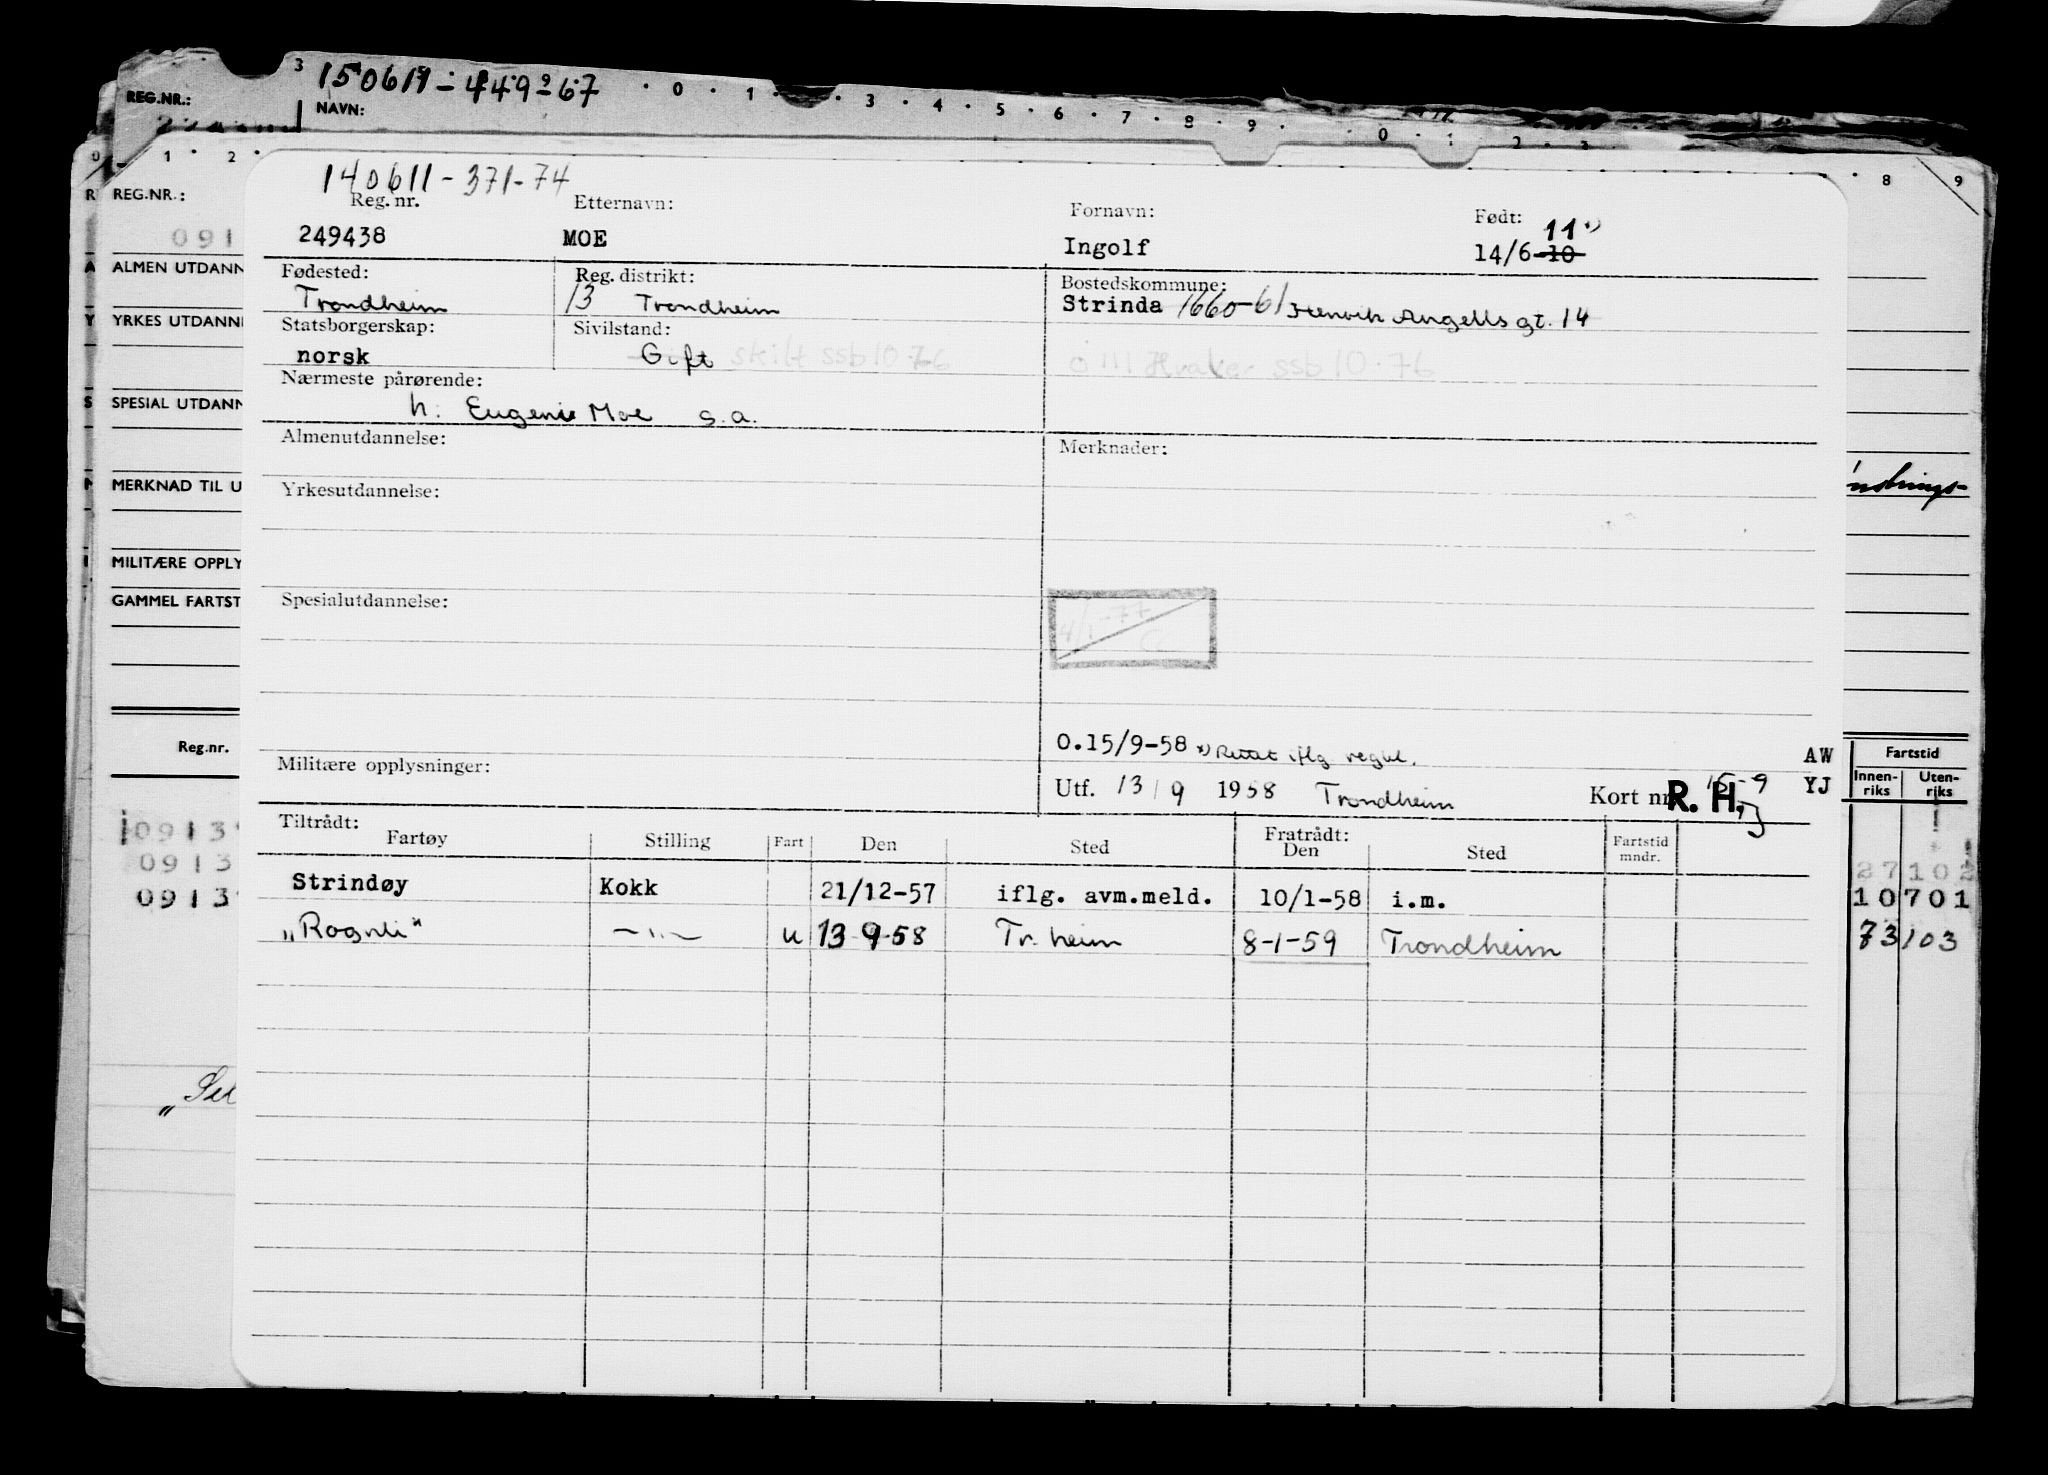 3 150611-449-67 0 1 3 4 5 6 7 8 9 0 1 2 3
REG.NR.: NAVN:
0 1 2 8 9
R REG.NR.:
091
A ALMEN UTDANN
Y YRKES UTDANN
S SPESIAL UTDANN
MERKNAD TIL U
MILITÆRE OPPLY
GAMMEL FARTST
Reg.nr.
0913
0913
0913
140611-371-74
Reg. nr. Etternavn: Fornavn: Født:
249438 MOE Ingolf 14/6-10 11
Fødested: Reg. distrikt: Bostedskommune:
Trondheim 13 Trondheim Strinda 1660-61 Henrik Angells gt. 14
Statsborgerskap: Sivilstand:
norsk Gift skilt ssb 10.76 ssb 10.76
Nærmeste pårørende:
h: Eugenie Moe s.a.
Almenutdannelse: Merknader:
Yrkesutdannelse:
Spesialutdannelse:
4/1-77
0.15/9-58 x) Rettet iflg regbl.
AW
Militære opplysninger: Utf. 13/9 1958 Trondheim Kort nr. R. H. 15-9 YJ
Tiltrådt: Fratrådt:
Fartøy Stilling Fart Den Sted Den Sted Fartstid mndr.
Strindøy Kokk 21/12-57 iflg. avm.meld. 10/1-58 i.m.
„Rognli" —"— u 13-9-58 Tr.heim 8-1-59 Trondheim
Fartstid
Innen-riks Uten-riks
27102
10701
73103